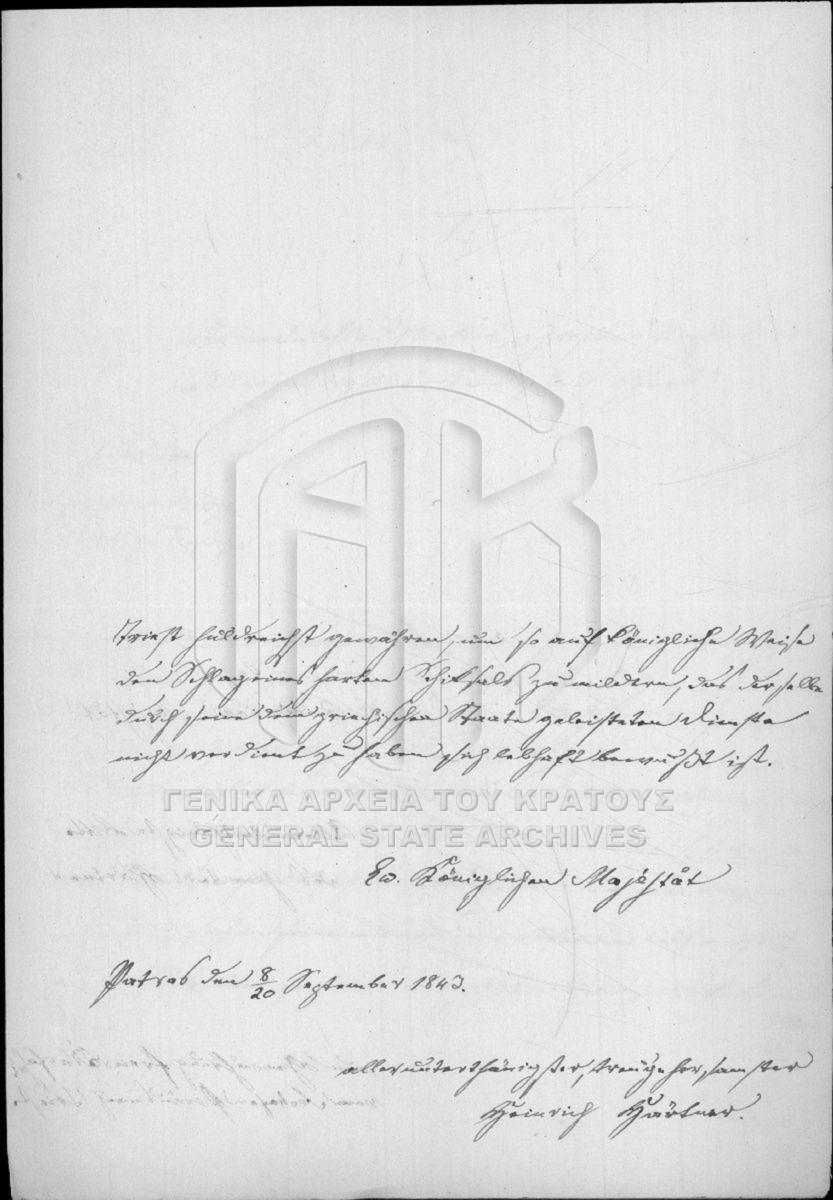 Triest huldreichst gewähren, um so auf königliche Weise
den Schlag eines harten Schiksals zu mildern, das derselbe
durch seine dem griechischen Staate geleisteten Dienste
nicht verdient zu haben sich lebhaft bewußt ist.
ΓΕΝΙΚΑ ΑΡΧΕΙΑ ΤΟΥ ΚΡΑΤΟΥΣ
GENERAL STATE ARCHIVES
Ew. Königlichen Majestät
Patras den 8/20 September 1843.
allerunterthänigster, treugehorsamster
Heinrich Gärtner.